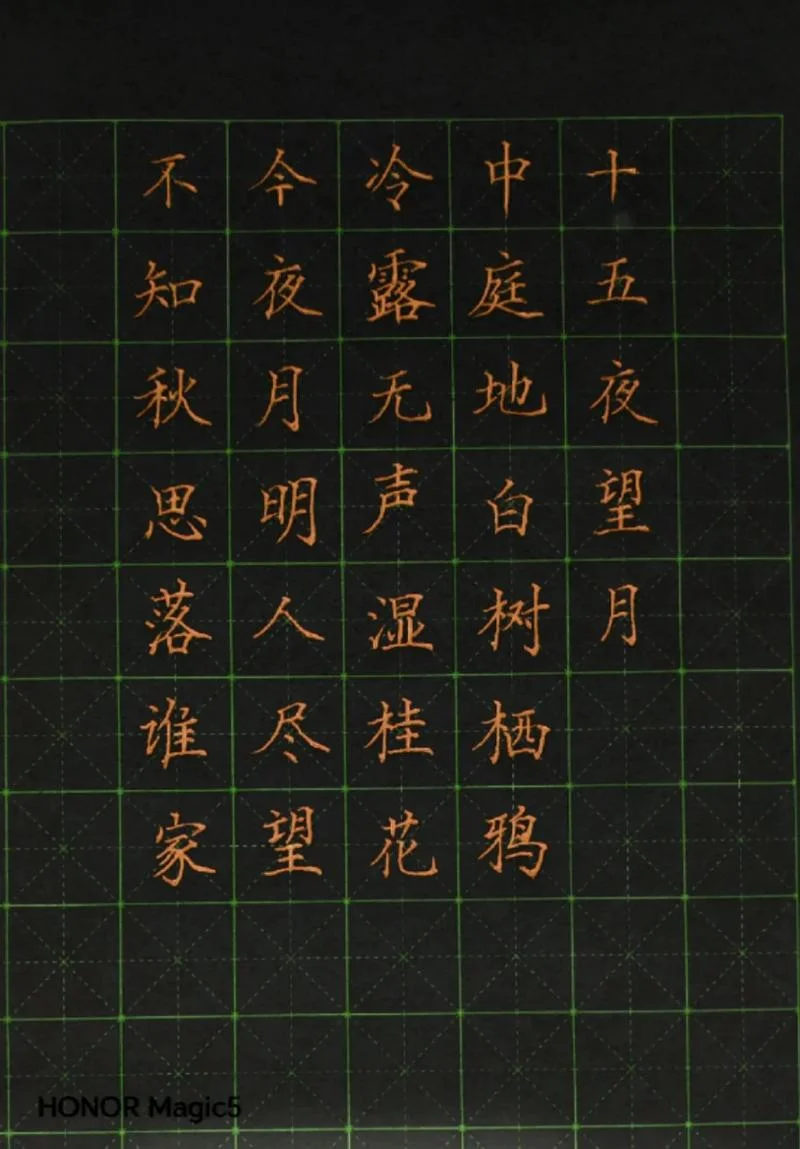 十五夜望月
中庭地白树栖鸦
冷露无声湿桂花
今夜月明人尽望
不知秋思落谁家
HONOR Magic5